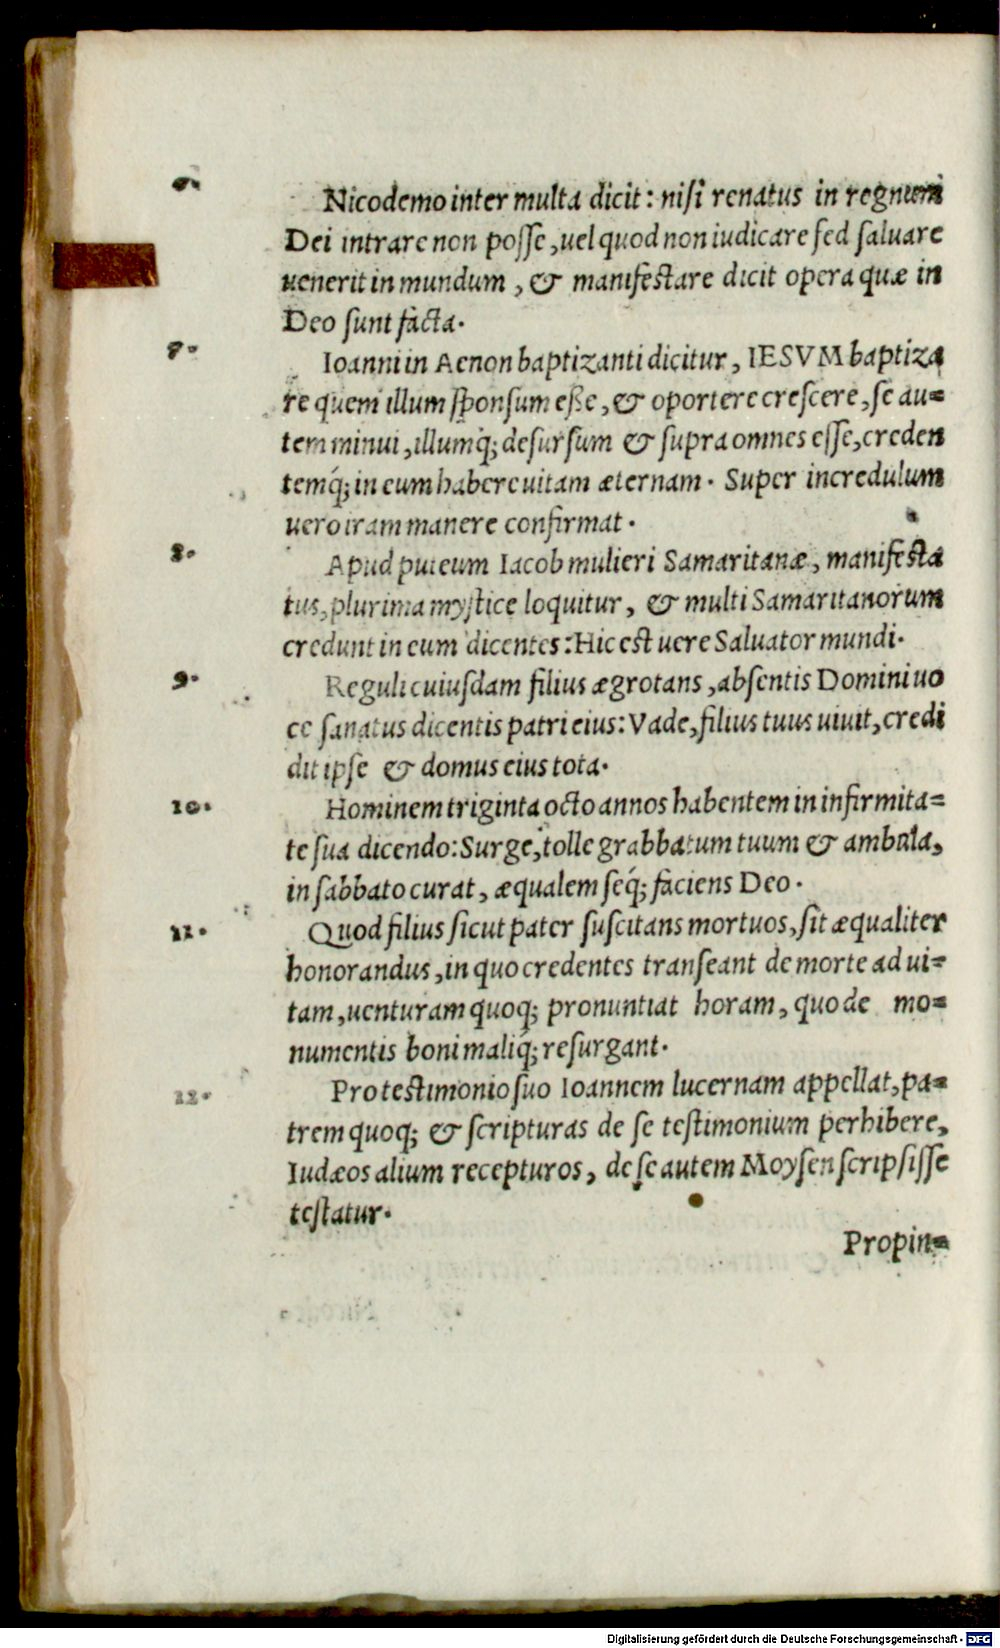 6.
Nicodemo inter multa dicit: nisi renatus in regnum
Dei intrare non posse, uel quod non iudicare sed saluare
uenerit in mundum, & manifestare dicit opera quæ in
Deo sunt facta.
7.
Ioanni in Aenon baptizanti dicitur, IESVM baptiza
re quem illum sponsum eße, & oportere crescere, se au=
tem minui, illumq́; desursum & supra omnes esse, creden
temq́; in eum habere uitam æternam. Super incredulum
uero iram manere confirmat.
8.
Apud puteum Iacob mulieri Samaritanæ, manifesta
tus, plurima mystice loquitur, & multi Samaritanorum
credunt in eum dicentes: Hic est uere Saluator mundi.
9.
Reguli cuiusdam filius ægrotans, absentis Domini uo
ce sanatus dicentis patri eius: Vade, filius tuus uiuit, credi
dit ipse & domus eius tota.
10.
Hominem triginta octo annos habentem in infirmita=
te sua dicendo: Surge, tolle grabbatum tuum & ambula,
in sabbato curat, æqualem seq́; faciens Deo.
11.
Quod filius sicut pater suscitans mortuos, sit æqualiter
honorandus, in quo credentes transeant de morte ad ui=
tam, uenturam quoq; pronuntiat horam, quo de mo=
numentis boni maliq́; resurgant.
12.
Pro testimonio suo Ioannem lucernam appellat, pa=
trem quoq; & scripturas de se testimonium perhibere,
Iudæos alium recepturos, de se autem Moysen scripsisse
testatur.
Propin=
Digitalisierung gefördert durch die Deutsche Forschungsgemeinschaft - DFG